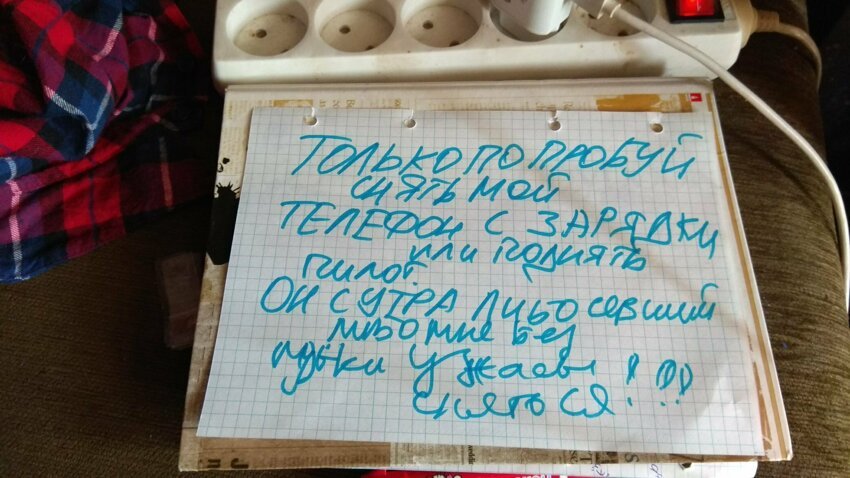 ТОЛЬКО ПОПРОБУЙ
СНЯТЬ МОЙ
ТЕЛЕФОН С ЗАРЯДКИ
ИЛИ ПОДНЯТЬ
ПИЛОТ.
ОН С УТРА ЛИБО СЕВШИЙ
ЛИБО МНЕ БЕЗ
МУЗЫКИ УЖАСЫ
СНЯТСЯ!!!